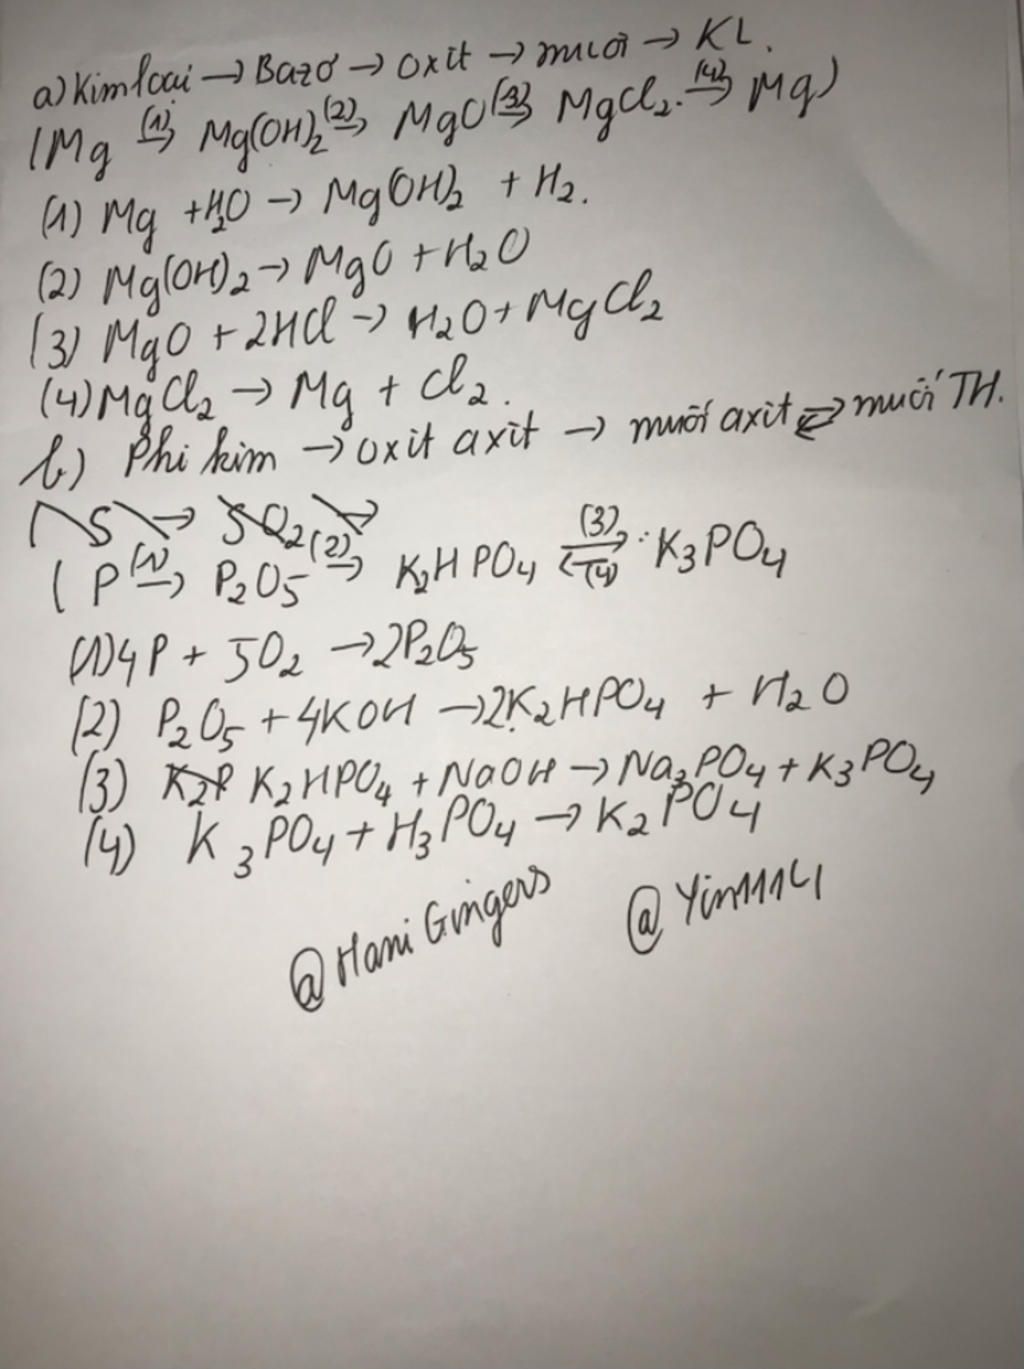 a) Kim loại → Bazơ → oxit → muối → KL.
(Mg (1)→ Mg(OH)₂ (2)→ MgO (3)→ MgCl₂. (4)→ Mg)
(1) Mg + H₂O → Mg(OH)₂ + H₂.
(2) Mg(OH)₂ → MgO + H₂O
(3) MgO + 2HCl → H₂O + MgCl₂
(4) MgCl₂ → Mg + Cl₂.
b) Phi kim → oxit axit → muối axit ⇄ muối TH.
(S → SO₂ →
(P (1)→ P₂O₅ (2)→ K₂HPO₄ (3)⇄(4) K₃PO₄
(1) 4P + 5O₂ → 2P₂O₅
(2) P₂O₅ + 4KOH → 2K₂HPO₄ + H₂O
(3) K₂P K₂HPO₄ + NaOH → Na₃PO₄ + K₃PO₄
(4) K₃PO₄ + H₃PO₄ → K₂PO₄
@Hani Gingers @Yin111L1